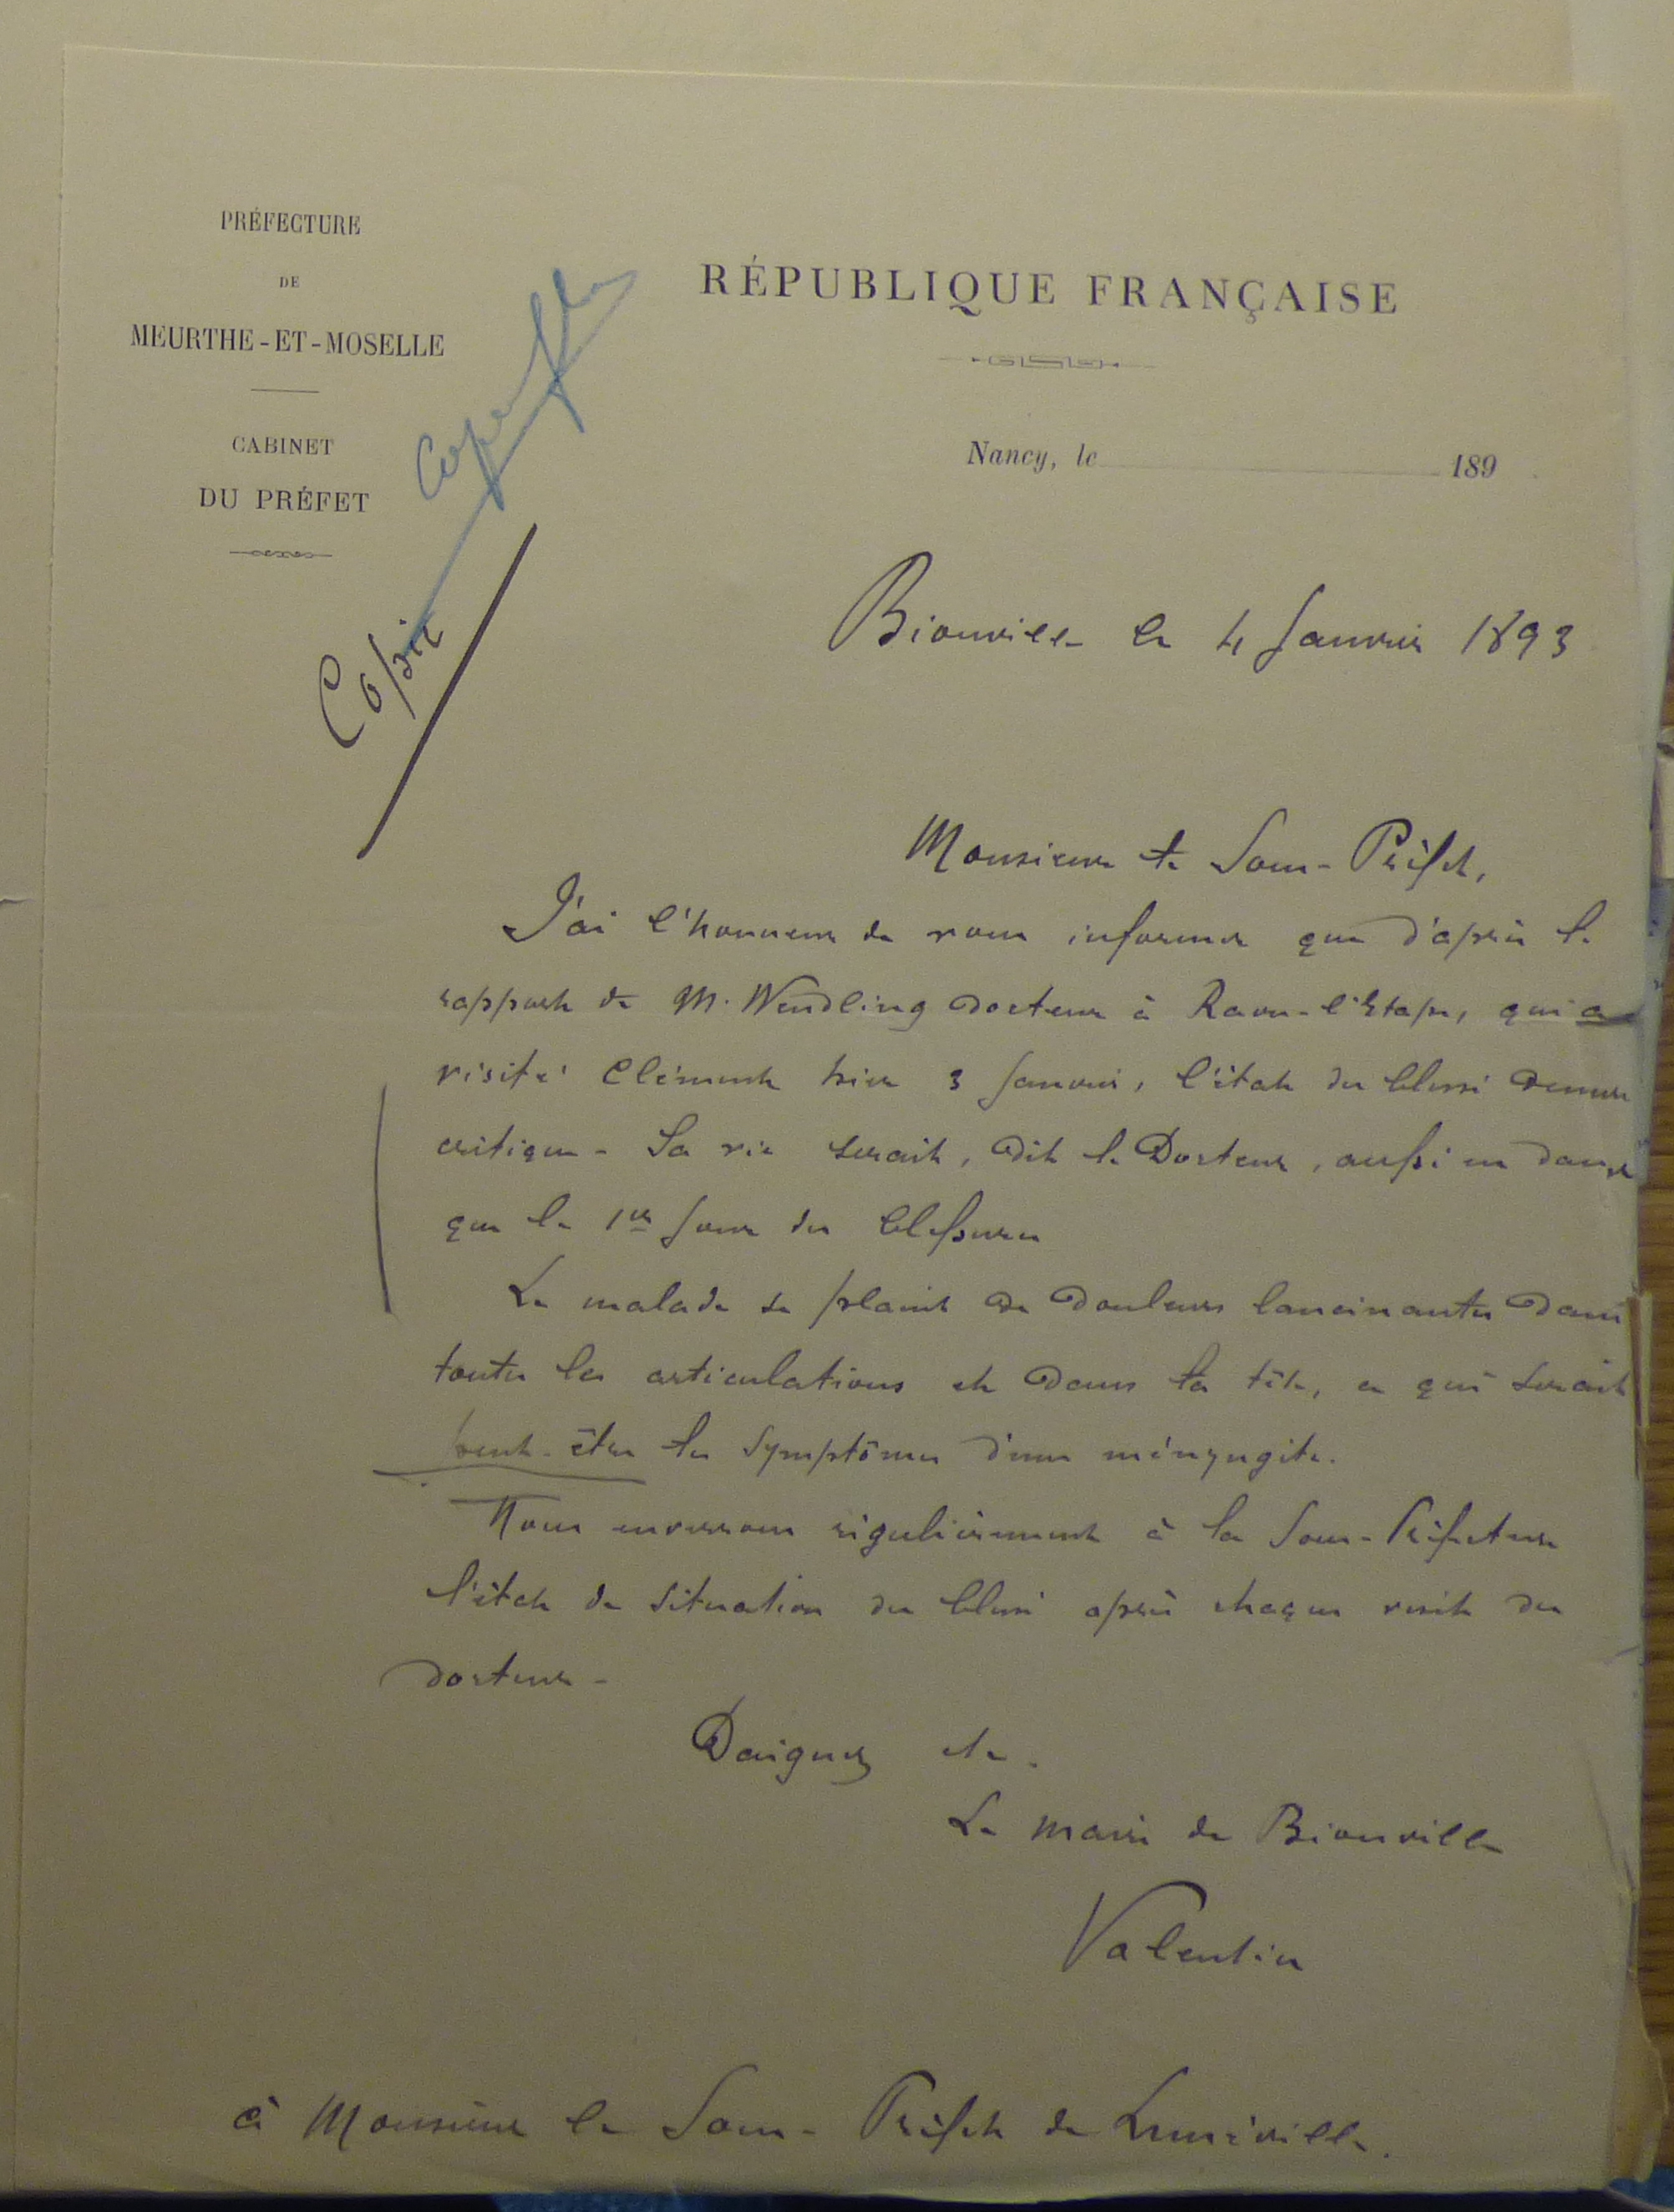 PRÉFECTURE
DE
MEURTHE-ET-MOSELLE
CABINET
DU PRÉFET
RÉPUBLIQUE FRANÇAISE
Nancy, le 189
Copie
Bionville le 4 Janvier 1893
Monsieur le Sous-Préfet,
J'ai l'honneur de vous informer que d'après le
rapport de M. Wendling docteur à Raon-l'Etape, qui a
visité Clément hier 3 Janvier, l'état du blessé demeure
critique - Sa vie serait, dit le Docteur, aussi en danger
que le 1er jour des blessures
Le malade se plaint de douleurs lancinantes dans
toutes les articulations et dans la tête, ce qui serait
peut-être les symptômes d'une ményngite.
Nous enverrons régulièrement à la Sous-Préfecture
l'état de situation du blessé après chaque visite du
docteur -
Daignez etc.
Le maire de Bionville
Valentin
à Monsieur le Sous-Préfet de Lunéville.